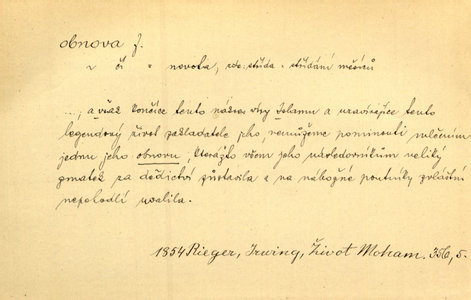 obnova f.
v čí = novota, zde: střída - střídání měsíců
...; a však končíce tento nákres víry Islamu a uzavírajíce tento
legendový život zakladatele jeho, nemůžeme pominouti mlčením
jednu jeho obnovu, kterážto všem jeho následovníkům veliký
zmatek za dědictví zůstavila a na nábožné poutníky zvláštní
nepohodlí uvalila.
1854 Rieger, Irwing, Život Moham. 356, 5.